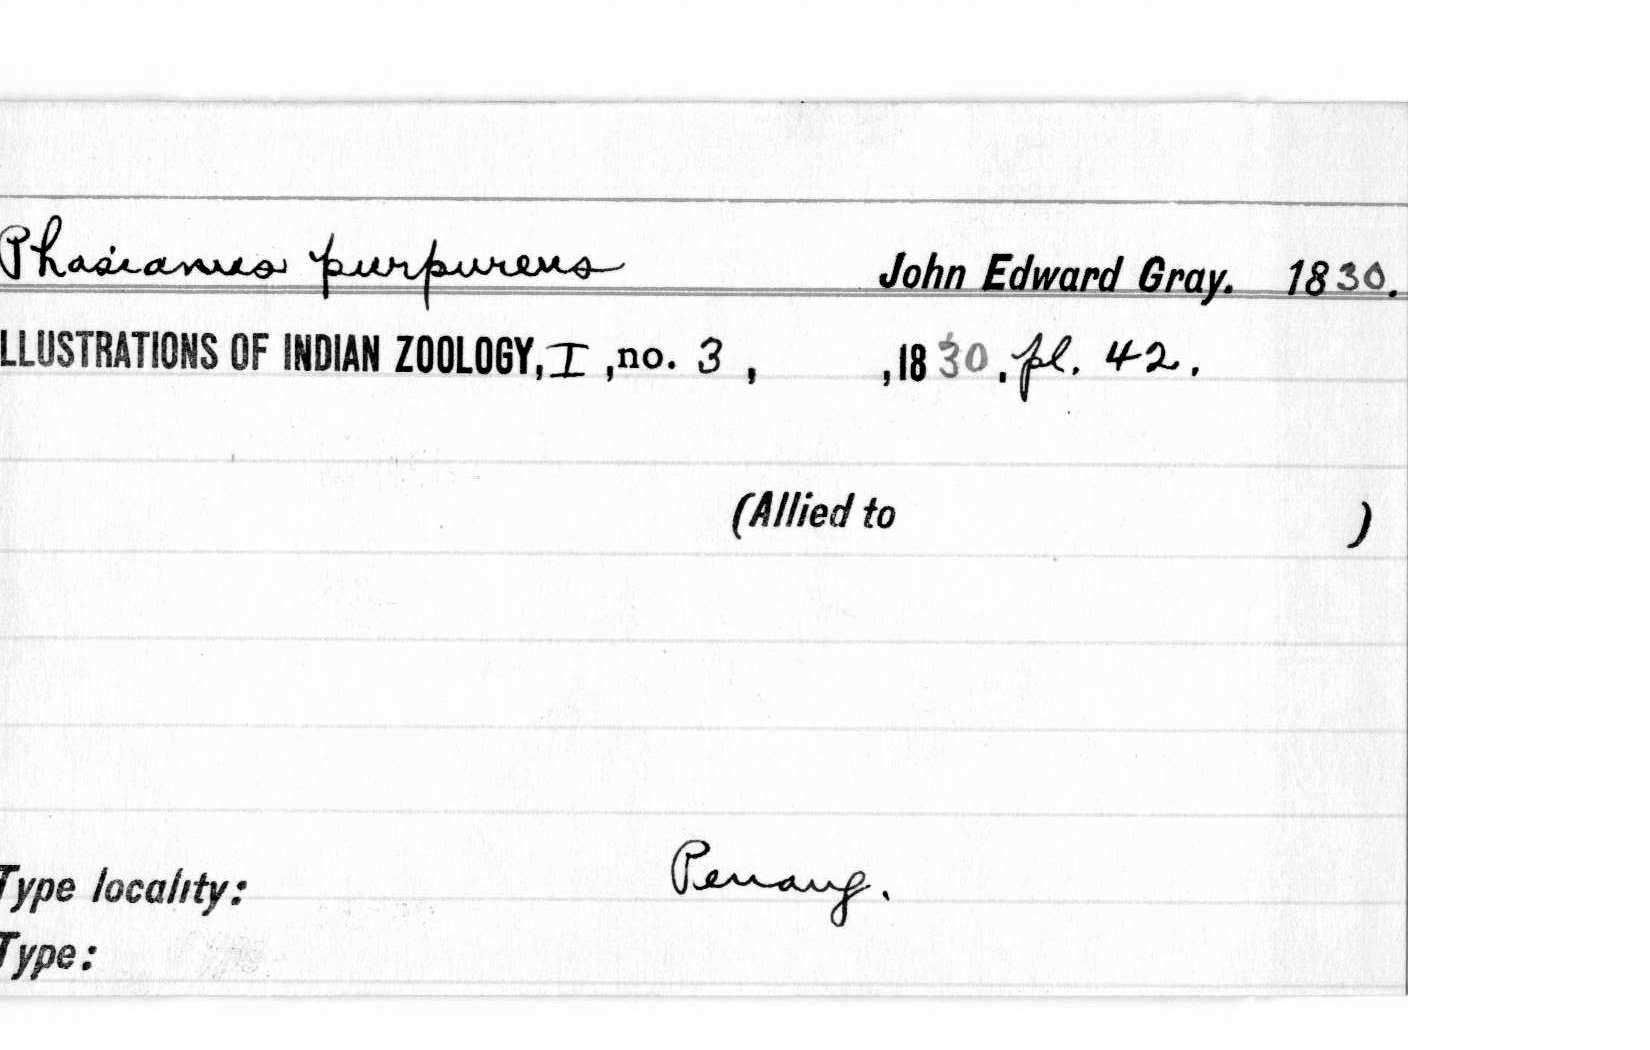 Phasianus purpureus John Edward Gray. 1830.
LLUSTRATIONS OF INDIAN ZOOLOGY, I, no. 3, ,1830. pl. 42.
(Allied to )
Type locality: Penang.
Type: